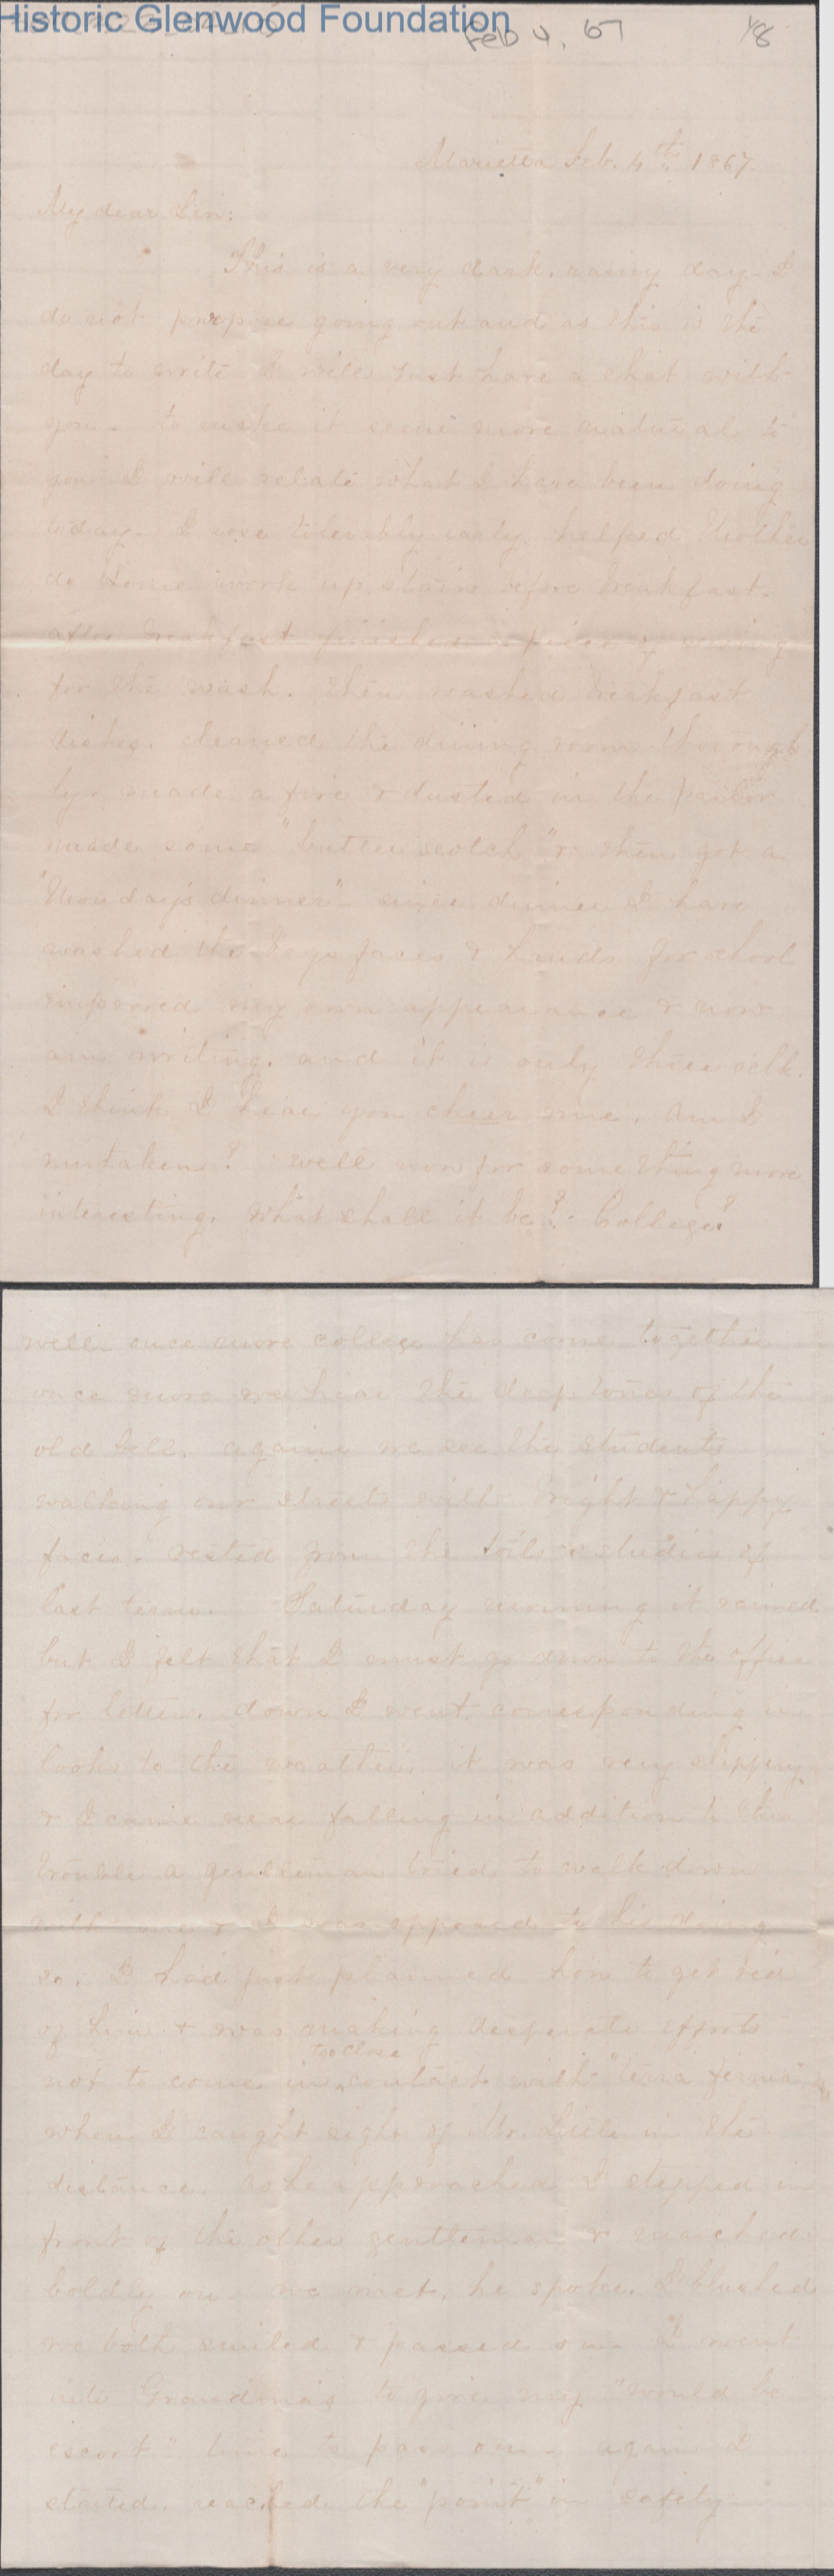 Historic Glenwood Foundation
Feb 4, 67 1/8
Marietta Feb. 4th 1867.
My dear Lin:
This is a very dark, rainy day - I
do not propose going out and as this is the
day to write I will just have a chat with
you - to make it seem more natural to
you I will relate what I have been doing
today - I rose tolerably early helped Mother
do some work up stairs before breakfast.
after breakfast finished a piece of sewing
for the wash. then washed breakfast
dishes. cleaned the dining room thorough
ly. made a fire & dusted in the parlor
made some "butter scotch" & then got a
"Monday's dinner" - since dinner I have
washed the boys faces & hands for school
improved my own appearance & now
am writing. and it is only three oclk.
I think I hear you cheer me. Am I
mistaken? well now for some thing more
interesting. What shall it be? - College?
well once more college has come together
once more we hear the deep tones of the
old bell. again we see the students
walking our streets with bright & happy
faces. rested from the toils & studies of
last term. Saturday morning it rained
but I felt that I must go down to the office
for letters. down I went corresponding in
looks to the weather. it was very slippery
& I came near falling in addition to this
trouble a gentleman tried to walk down
with me & I was opposed to his doing
so. I had just planned how to get rid
of him & was making desperate efforts
too close
not to come in contact with "terra firma"
when I caught sight of Mr. Little in the
distance. as he approached I stepped in
front of the other gentleman & marched
boldly on. we met, he spoke. I blushed
we both smiled & passed on - I went
into Grandma's to give my "would be
escort" time to pass on - again I
started. reached the "point" in safety -